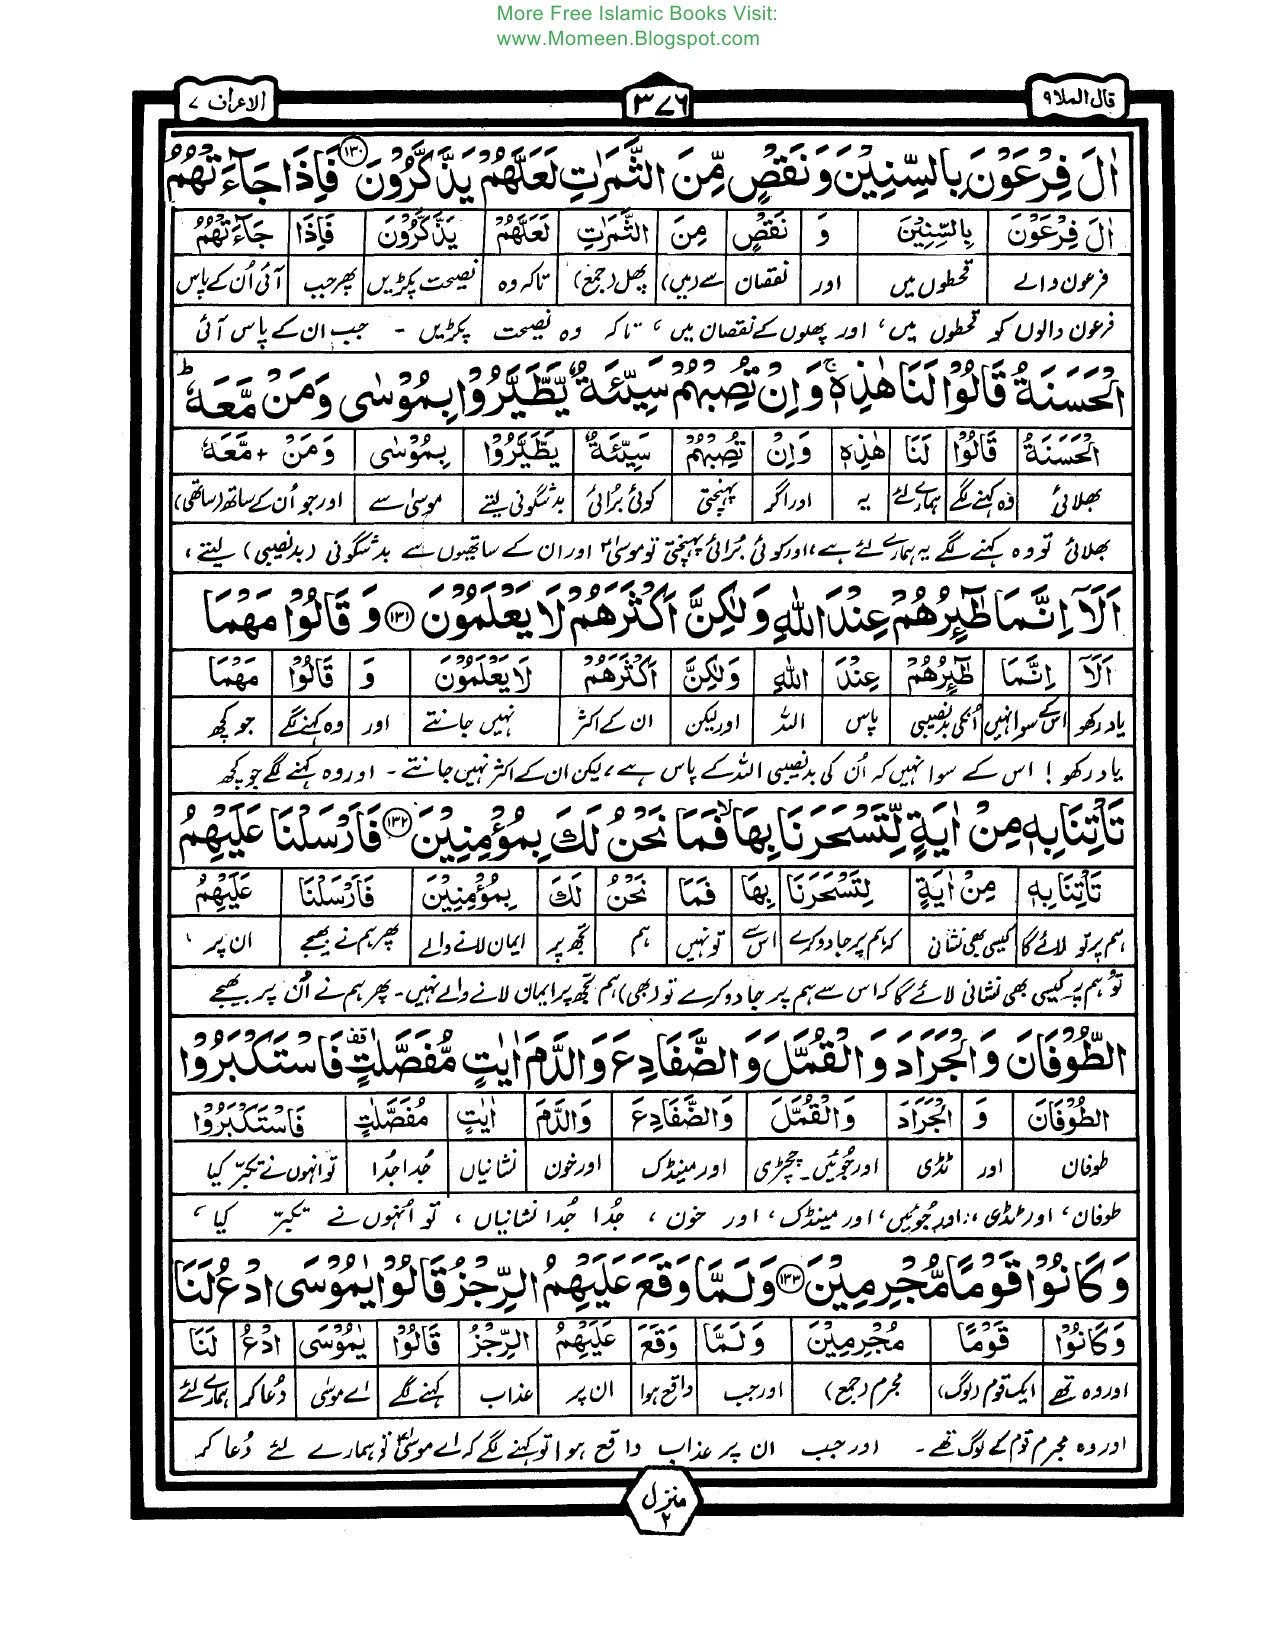 More Free Islamic Books Visit:
www.Momeen.Blogspot.com
قال الملا ٩
٣٧٦
الاعراف ٧
اٰلَ فِرْعَوْنَ بِالسِّنِيْنَ وَنَقْصٍ مِّنَ الثَّمَرٰتِ لَعَلَّهُمْ يَذَّكَّرُوْنَ ﴿١٣٠﴾ فَاِذَا جَآءَتْهُمُ
اٰلَ فِرْعَوْنَ بِالسِّنِيْنَ وَ نَقْصٍ مِنَ الثَّمَرٰتِ لَعَلَّهُمْ يَذَّكَّرُوْنَ فَاِذَا جَآءَتْهُمُ
فرعون والے قحطوں میں اور نقصان سے (میں) پھل (جمع) تاکہ وہ نصیحت پکڑیں پھر جب آئی اُن کے پاس
فرعون والوں کو قحطوں میں، اور پھلوں کے نقصان میں، تاکہ وہ نصیحت پکڑیں - جب ان کے پاس آئی
الْحَسَنَةُ قَالُوْا لَنَا هٰذِهٖ ۚ وَاِنْ تُصِبْهُمْ سَيِّئَةٌ يَّطَّيَّرُوْا بِمُوْسٰى وَمَنْ مَّعَهٗ ؕ
الْحَسَنَةُ قَالُوْا لَنَا هٰذِهٖ وَاِنْ تُصِبْهُمْ سَيِّئَةٌ يَطَّيَّرُوْا بِمُوْسٰى وَمَنْ + مَّعَهٗ
بھلائی وہ کہنے لگے ہمارے لئے یہ اور اگر پہنچتی کوئی بُرائی بدشگونی لیتے موسیٰ سے اور جو اُن کے ساتھ (ساتھی)
بھلائی تو وہ کہنے لگے یہ ہمارے لئے ہے، اور کوئی بُرائی پہنچتی تو موسیٰؑ اور ان کے ساتھیوں سے بدشگونی (بدنصیبی) لیتے،
اَلَآ اِنَّمَا طٰٓئِرُهُمْ عِنْدَ اللّٰهِ وَلٰكِنَّ اَكْثَرَهُمْ لَا يَعْلَمُوْنَ ﴿١٣١﴾ وَقَالُوْا مَهْمَا
اَلَآ اِنَّمَا طٰٓئِرُهُمْ عِنْدَ اللّٰهِ وَلٰكِنَّ اَكْثَرَهُمْ لَا يَعْلَمُوْنَ وَ قَالُوْا مَهْمَا
یاد رکھو اس کے سوا نہیں اُنکی بدنصیبی پاس اللہ اور لیکن ان کے اکثر نہیں جانتے اور وہ کہنے لگے جو کچھ
یاد رکھو! اس کے سوا نہیں کہ اُن کی بدنصیبی اللہ کے پاس ہے، لیکن ان کے اکثر نہیں جانتے - اور وہ کہنے لگے جو کچھ
تَاْتِنَا بِهٖ مِنْ اٰيَةٍ لِّتَسْحَرَنَا بِهَا ۙ فَمَا نَحْنُ لَكَ بِمُؤْمِنِيْنَ ﴿١٣٢﴾ فَاَرْسَلْنَا عَلَيْهِمُ
تَاْتِنَا بِهٖ مِنْ اٰيَةٍ لِتَسْحَرَنَا بِهَا فَمَا نَحْنُ لَكَ بِمُؤْمِنِيْنَ فَاَرْسَلْنَا عَلَيْهِمُ
ہم پر تو لائے گا کیسی بھی نشانی کہ ہم پر جادو کرے اس سے تو نہیں ہم تجھ پر ایمان لانے والے پھر ہم نے بھیجے ان پر
تو ہم پہ کیسی بھی نشانی لائے گا کہ اس سے ہم پر جادو کرے تو (بھی) ہم تجھ پر ایمان لانے والے نہیں - پھر ہم نے اُن پر بھیجے
الطُّوْفَانَ وَالْجَرَادَ وَالْقُمَّلَ وَالضَّفَادِعَ وَالدَّمَ اٰيٰتٍ مُّفَصَّلٰتٍ فَاسْتَكْبَرُوْا
الطُّوْفَانَ وَ الْجَرَادَ وَالْقُمَّلَ وَالضَّفَادِعَ وَالدَّمَ اٰيٰتٍ مُفَصَّلٰتٍ فَاسْتَكْبَرُوْا
طوفان اور ٹڈی اور جُوئیں - چچڑی اور مینڈک اور خون نشانیاں جُدا جُدا تو انہوں نے تکبّر کیا
طوفان، اور ٹڈی، اور جُوئیں، اور مینڈک، اور خون، جُدا جُدا نشانیاں، تو اُنہوں نے تکبّر کیا،
وَكَانُوْا قَوْمًا مُّجْرِمِيْنَ ﴿١٣٣﴾ وَلَمَّا وَقَعَ عَلَيْهِمُ الرِّجْزُ قَالُوْا يٰمُوْسَى ادْعُ لَنَا
وَكَانُوْا قَوْمًا مُجْرِمِيْنَ وَلَمَّا وَقَعَ عَلَيْهِمُ الرِّجْزُ قَالُوْا يٰمُوْسَى ادْعُ لَنَا
اور وہ تھے ایک قوم (لوگ) مجرم (جمع) اور جب واقع ہوا ان پر عذاب کہنے لگے اے موسٰی دُعا کر ہمارے لئے
اور وہ مجرم قوم کے لوگ تھے - اور جب ان پر عذاب واقع ہوا تو کہنے لگے کہ اے موسیٰؑ تو ہمارے لئے دُعا کر
منزل ٢